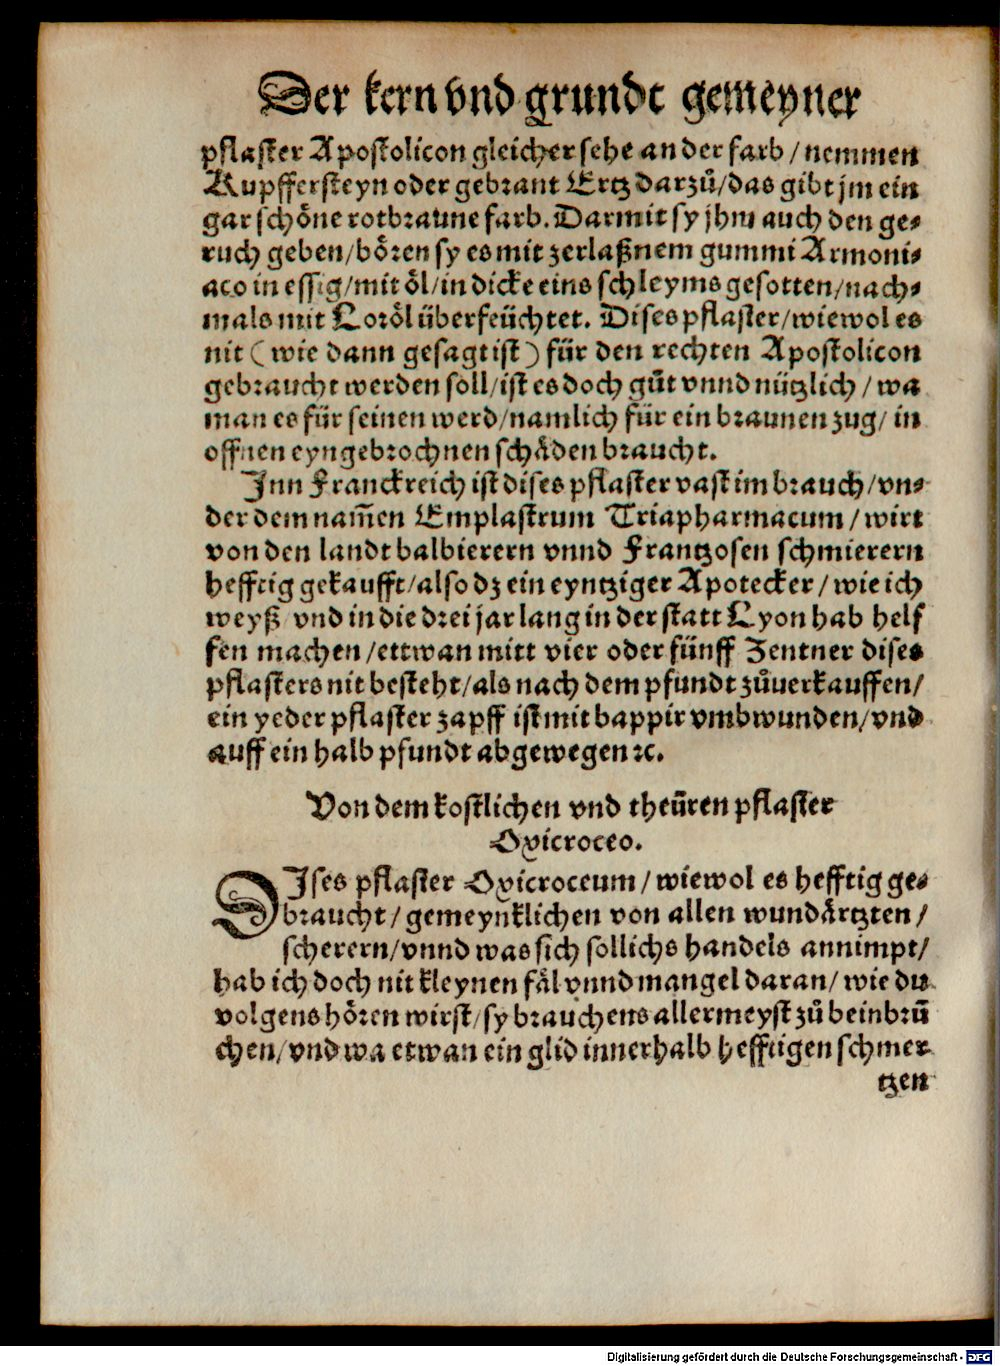 Der kern vnd grundt gemeyner
pflaster Apostolicon gleicher sehe an der farb / nemmen
Kupffersteyn oder gebrant Ertz darzů / das gibt jm ein
gar schöne rotbraune farb. Darmit sy jhm auch den ge⸗
ruch geben / bören sy es mit zerlaßnem gummi Armoni⸗
aco in essig / mit öl / in dicke eins schleyms gesotten / nach⸗
mals mit Loröl überfeüchtet. Dises pflaster / wiewol es
nit (wie dann gesagt ist) für den rechten Apostolicon
gebraucht werden soll / ist es doch gůt vnnd nützlich / wa
man es für seinen werd / namlich für ein braunen zug / in
offnen eyngebrochnen schäden braucht.
Inn Franckreich ist dises pflaster vast im brauch / vn⸗
der dem nam̄en Emplastrum Triapharmacum / wirt
von den landt balbierern vnnd Frantzosen schmierern
hefftig gekaufft / also dz ein eyntziger Apotecker / wie ich
weyß vnd in die drei jar lang in der statt Lyon hab helf
fen machen / ettwan mitt vier oder fünff Zentner dises
pflasters nit besteht / als nach dem pfundt zůuerkauffen /
ein yeder pflaster zapff ist mit bappir vmbwunden / vnd
auff ein halb pfundt abgewegen ꝛc.
Von dem kostlichen vnd theüren pflaster
Oxicroceo.
DIses pflaster Oxicroceum / wiewol es hefftig ge⸗
braucht / gemeynklichen von allen wundärtzten /
scherern / vnnd was sich sollichs handels annimpt /
hab ich doch nit kleynen fäl vnnd mangel daran / wie du
volgens hören wirst / sy brauchens allermeyst zů beinbrü
chen / vnd wa etwan ein glid innerhalb hefftigen schmer
tzen
Digitalisierung gefördert durch die Deutsche Forschungsgemeinschaft - DFG